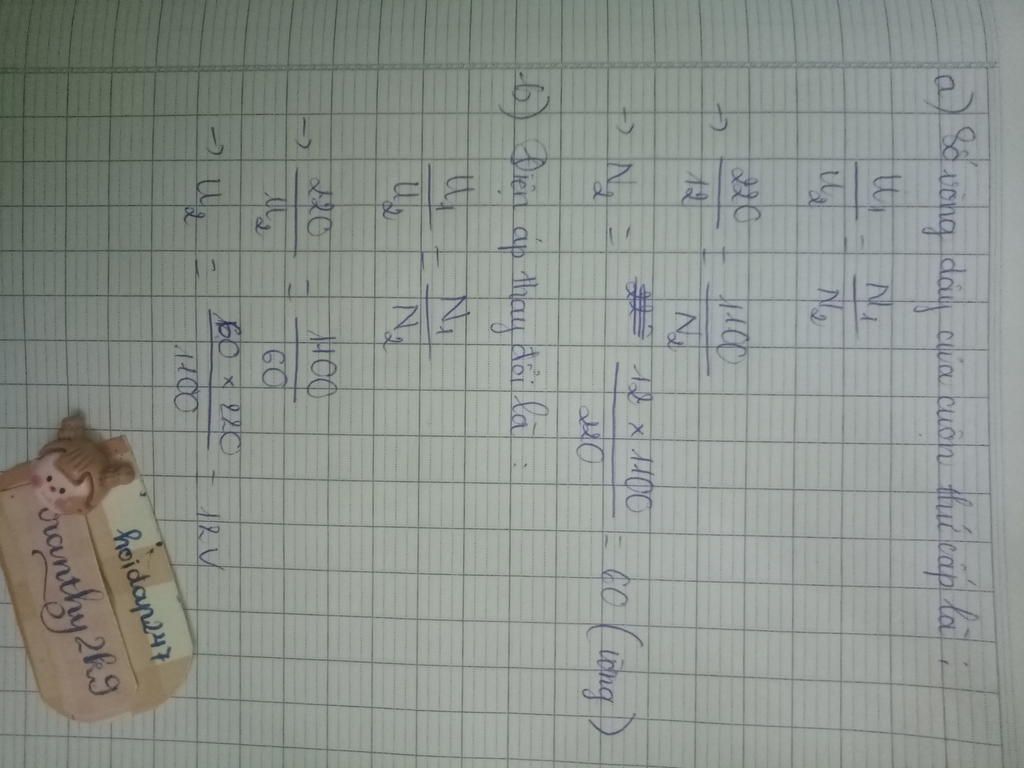 a) Số vòng dây của cuộn thứ cấp là :
U1/U2 = N1/N2
→ 220/12 = 1100/N2
→ N2 = 12 x 1100/220 = 60 (vòng)
b) Điện áp thay đổi là :
U1/U2 = N1/N2
→ 220/U2 = 1100/60
→ U2 = 60 x 220/1100 = 12V
hoidap247
tranthy2k9